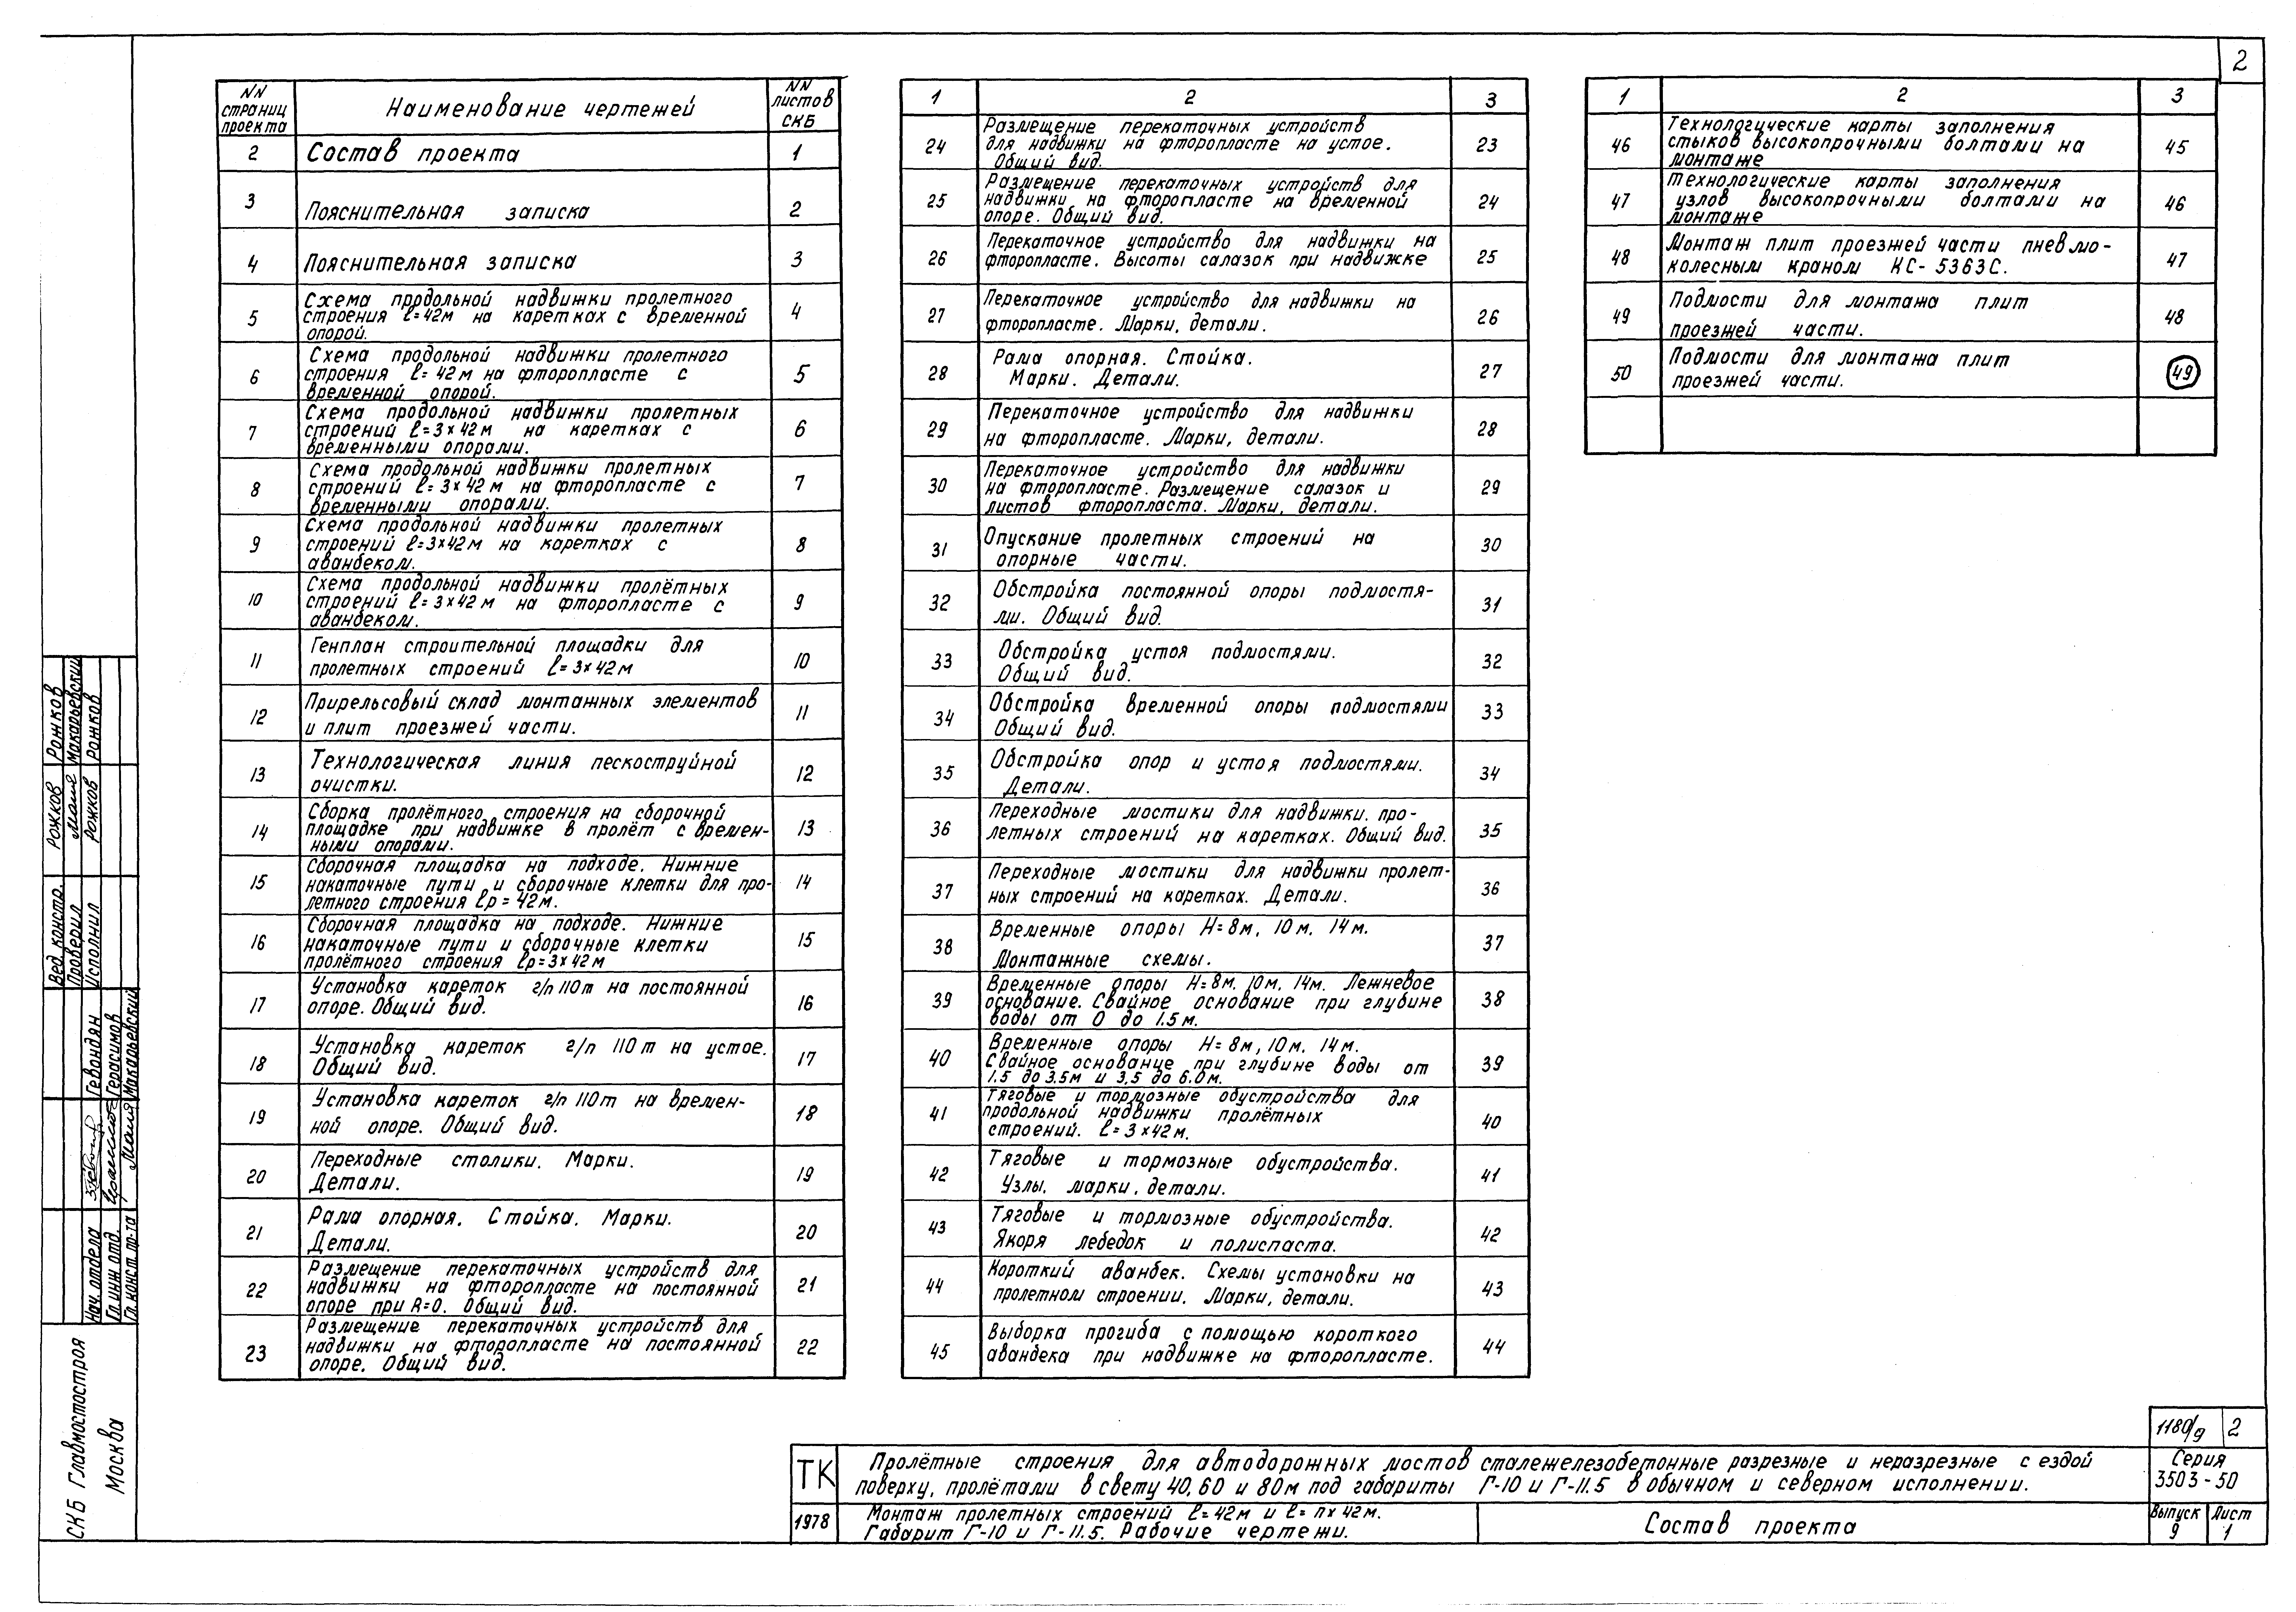 2
NN страниц проекта
Наименование чертежей
NN листов СКБ
2 Состав проекта 1
3 Пояснительная записка 2
4 Пояснительная записка 3
5 Схема продольной надвижки пролетного 4
строения ℓ=42м на каретках с временной
опорой.
6 Схема продольной надвижки пролетного 5
строения ℓ=42м на фторопласте с
временной опорой.
7 Схема продольной надвижки пролетных 6
строений ℓ=3×42м на каретках с
временными опорами.
8 Схема продольной надвижки пролетных 7
строений ℓ=3×42м на фторопласте с
временными опорами.
9 Схема продольной надвижки пролетных 8
строений ℓ=3×42м на каретках с
аванбеком.
10 Схема продольной надвижки пролётных 9
строений ℓ=3×42м на фторопласте с
аванбеком.
11 Генплан строительной площадки для 10
пролетных строений ℓ=3×42м
12 Прирельсовый склад монтажных элементов 11
и плит проезжей части.
13 Технологическая линия пескоструйной 12
очистки.
14 Сборка пролётного строения на сборочной 13
площадке при надвижке в пролёт с времен-
ными опорами.
15 Сборочная площадка на подходе. Нижние 14
накаточные пути и сборочные клетки для про-
летного строения ℓр=42м.
16 Сборочная площадка на подходе. Нижние 15
накаточные пути и сборочные клетки
пролётного строения ℓр=3×42м
17 Установка кареток г/п 110т на постоянной 16
опоре. Общий вид.
18 Установка кареток г/п 110т на устое. 17
Общий вид.
19 Установка кареток г/п 110т на времен- 18
ной опоре. Общий вид.
20 Переходные столики. Марки. 19
Детали.
21 Рама опорная. Стойка. Марки. 20
Детали.
22 Размещение перекаточных устройств для 21
надвижки на фторопласте на постоянной
опоре при R=0. Общий вид.
23 Размещение перекаточных устройств для 22
надвижки на фторопласте на постоянной
опоре. Общий вид.
1 2 3
24 Размещение перекаточных устройств 23
для надвижки на фторопласте на устое.
Общий вид.
25 Размещение перекаточных устройств для 24
надвижки на фторопласте на временной
опоре. Общий вид.
26 Перекаточное устройство для надвижки на 25
фторопласте. Высоты салазок при надвижке
27 Перекаточное устройство для надвижки на 26
фторопласте. Марки, детали.
28 Рама опорная. Стойка. 27
Марки. Детали.
29 Перекаточное устройство для надвижки 28
на фторопласте. Марки, детали.
30 Перекаточное устройство для надвижки 29
на фторопласте. Размещение салазок и
листов фторопласта. Марки, детали.
31 Опускание пролетных строений на 30
опорные части.
32 Обстройка постоянной опоры подмостя- 31
ми. Общий вид.
33 Обстройка устоя подмостями. 32
Общий вид.
34 Обстройка временной опоры подмостями 33
Общий вид.
35 Обстройка опор и устоя подмостями. 34
Детали.
36 Переходные мостики для надвижки. про- 35
летных строений на каретках. Общий вид.
37 Переходные мостики для надвижки пролет- 36
ных строений на каретках. Детали.
38 Временные опоры Н=8м, 10м, 14м. 37
Монтажные схемы.
39 Временные опоры Н=8м, 10м, 14м. Лежневое 38
основание. Свайное основание при глубине
воды от 0 до 1.5м.
40 Временные опоры Н=8м, 10м, 14м. 39
Свайное основание при глубине воды от
1.5 до 3.5м и 3.5 до 6.0м.
41 Тяговые и тормозные обустройства для 40
продольной надвижки пролётных
строений. ℓ=3×42м.
42 Тяговые и тормозные обустройства. 41
Узлы, марки, детали.
43 Тяговые и тормозные обустройства. 42
Якоря лебедок и полиспаста.
44 Короткий аванбек. Схемы установки на 43
пролетном строении. Марки, детали.
45 Выборка прогиба с помощью короткого 44
аванбека при надвижке на фторопласте.
1 2 3
46 Технологические карты заполнения 45
стыков высокопрочными болтами на
монтаже
47 Технологические карты заполнения 46
узлов высокопрочными болтами на
монтаже
48 Монтаж плит проезжей части пневмо- 47
колесным краном КС-5363С.
49 Подмости для монтажа плит 48
проезжей части.
50 Подмости для монтажа плит 49
проезжей части.
Вед. констр. Рожков Рожков
Проверил Макарьевский
Исполнил Рожков Рожков
Нач. отдела Гевондян
Гл. инж. отд. Герасимов
Гл. конст. пр-та Макарьевский
СКБ Главмостостроя
Москва
1180/9 2
ТК Пролётные строения для автодорожных мостов сталежелезобетонные разрезные и неразрезные с ездой
поверху, пролётами в свету 40, 60 и 80м под габариты Г-10 и Г-11.5 в обычном и северном исполнении.
Серия
3503-50
1978 Монтаж пролетных строений ℓ=42м и ℓ=n×42м.
Габарит Г-10 и Г-11.5. Рабочие чертежи.
Состав проекта
Выпуск 9
Лист 1